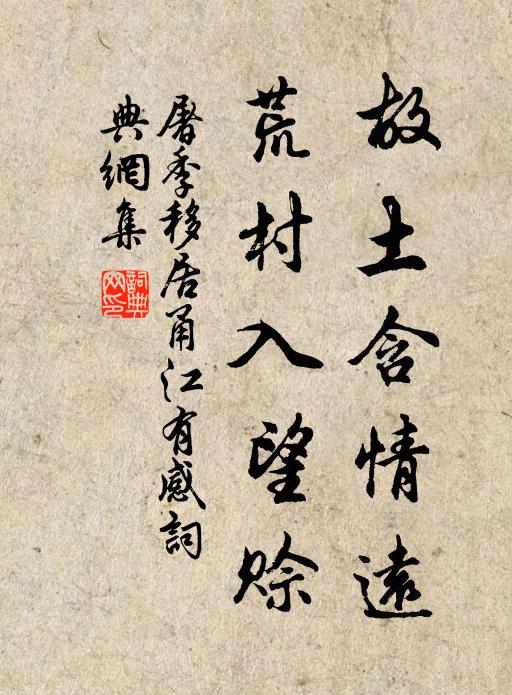 故土含情遠
荒村入望賒
屠季移居甬江有感詞
典網集
詞典網印